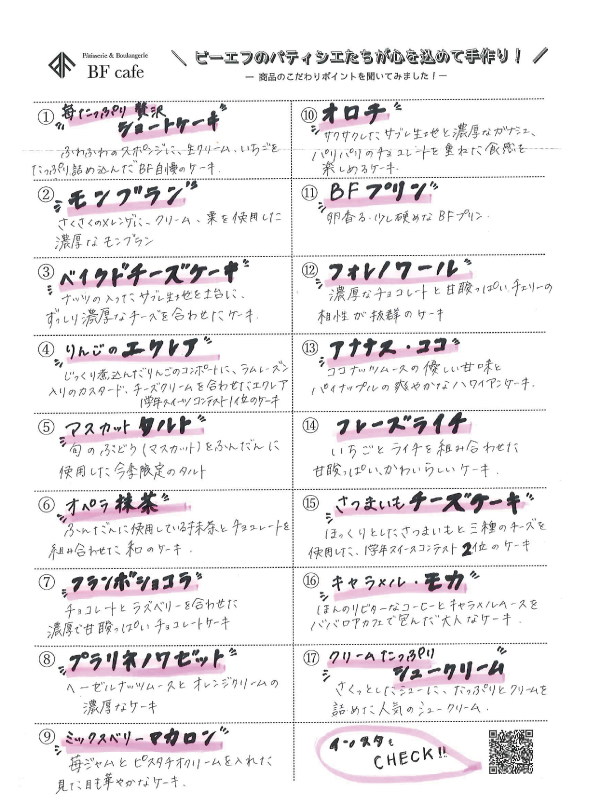 Pâtisserie & Boulangerie
BF cafe
＼ ビーエフのパティシエたちが心を込めて手作り！ ／
― 商品のこだわりポイントを聞いてみました！―
① 苺たっぷり贅沢
ショートケーキ
ふわふわのスポンジに、生クリーム、いちごを
たっぷり詰め込んだBF自慢のケーキ.
② モンブラン
さくさくのメレンゲに、クリーム、栗を使用した
濃厚なモンブラン
③ ベイクドチーズケーキ
ナッツの入ったサブレ生地を土台に、
ずっしり濃厚なチーズを合わせたケーキ.
④ りんごのエクレア
じっくり煮込んだりんごのコンポートに、ラムレーズン
入りのカスタード、チーズクリームを合わせたエクレア
1学年スイーツコンテスト1位のケーキ
⑤ マスカットタルト
旬のぶどう(マスカット)をふんだんに
使用した今季限定のタルト
⑥ オペラ抹茶
ふんだんに使用している抹茶とチョコレートを
組み合わせた和のケーキ.
⑦ フランボショコラ
チョコレートとラズベリーを合わせた
濃厚で甘酸っぱいチョコレートケーキ
⑧ プラリネノワゼット
ヘーゼルナッツムースとオレンジクリームの
濃厚なケーキ
⑨ ミックスベリーマカロン
苺ジャムとピスタチオクリームを入れた
見た目も華やかなケーキ.
⑩ オロチ
サクサクしたサブレ生地と濃厚なガナシュ、
パリパリのチョコレートを重ねた食感を
楽しめるケーキ.
⑪ BFプリン
卵香る、少し硬めなBFプリン.
⑫ フォレノワール
濃厚なチョコレートと甘酸っぱいチェリーの
相性が抜群のケーキ
⑬ アナナス・ココ
ココナッツムースの優しい甘味と
パイナップルの爽やかなハワイアンケーキ.
⑭ フレーズライチ
いちごとライチを組み合わせた
甘酸っぱい、かわいらしいケーキ.
⑮ さつまいもチーズケーキ
ほっくりとしたさつまいもと三種のチーズを
使用した、1学年スイーツコンテスト2位のケーキ
⑯ キャラメル・モカ
ほんのりビターなコーヒーとキャラメルムースを
ババロアカフェで包んだ大人なケーキ.
⑰ クリームたっぷり
シュークリーム
さくっとしたシューに、たっぷりとクリームを
詰めた人気のシュークリーム.
インスタも
CHECK!!